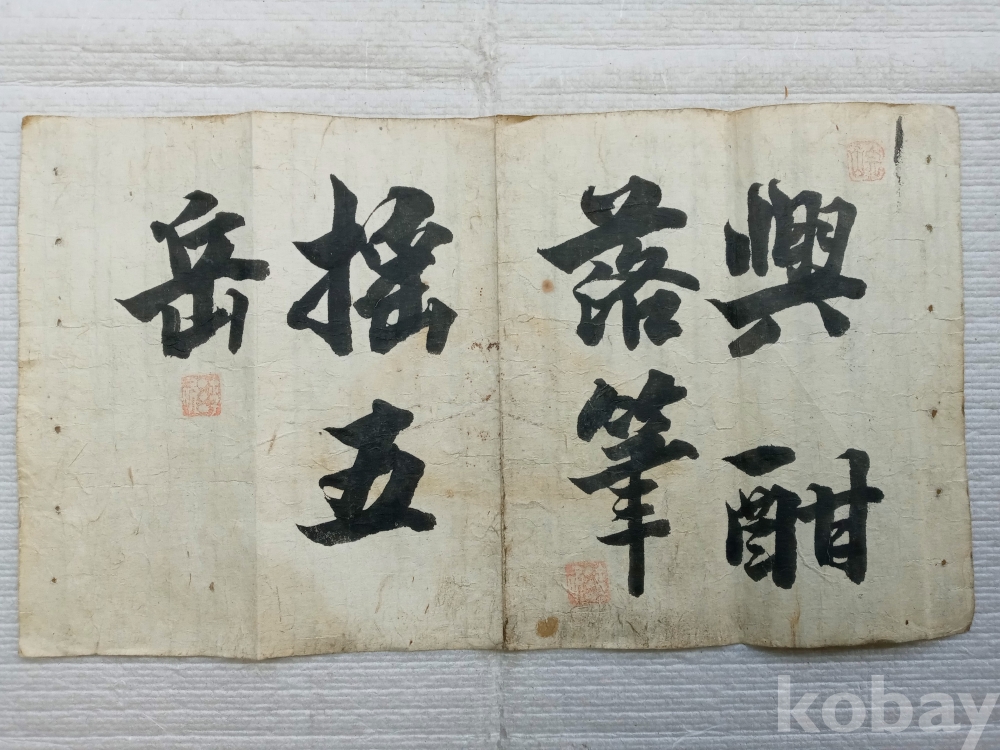 興酣
落筆
搖五
岳
kobay